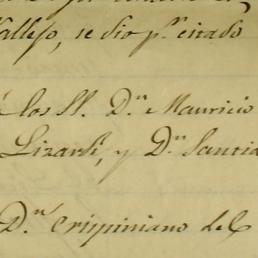 Vallejo, se dio p.r citado
los SS. D.n Mauricio
Lizardi, y D.n Santia
D.n Crispiniano del C